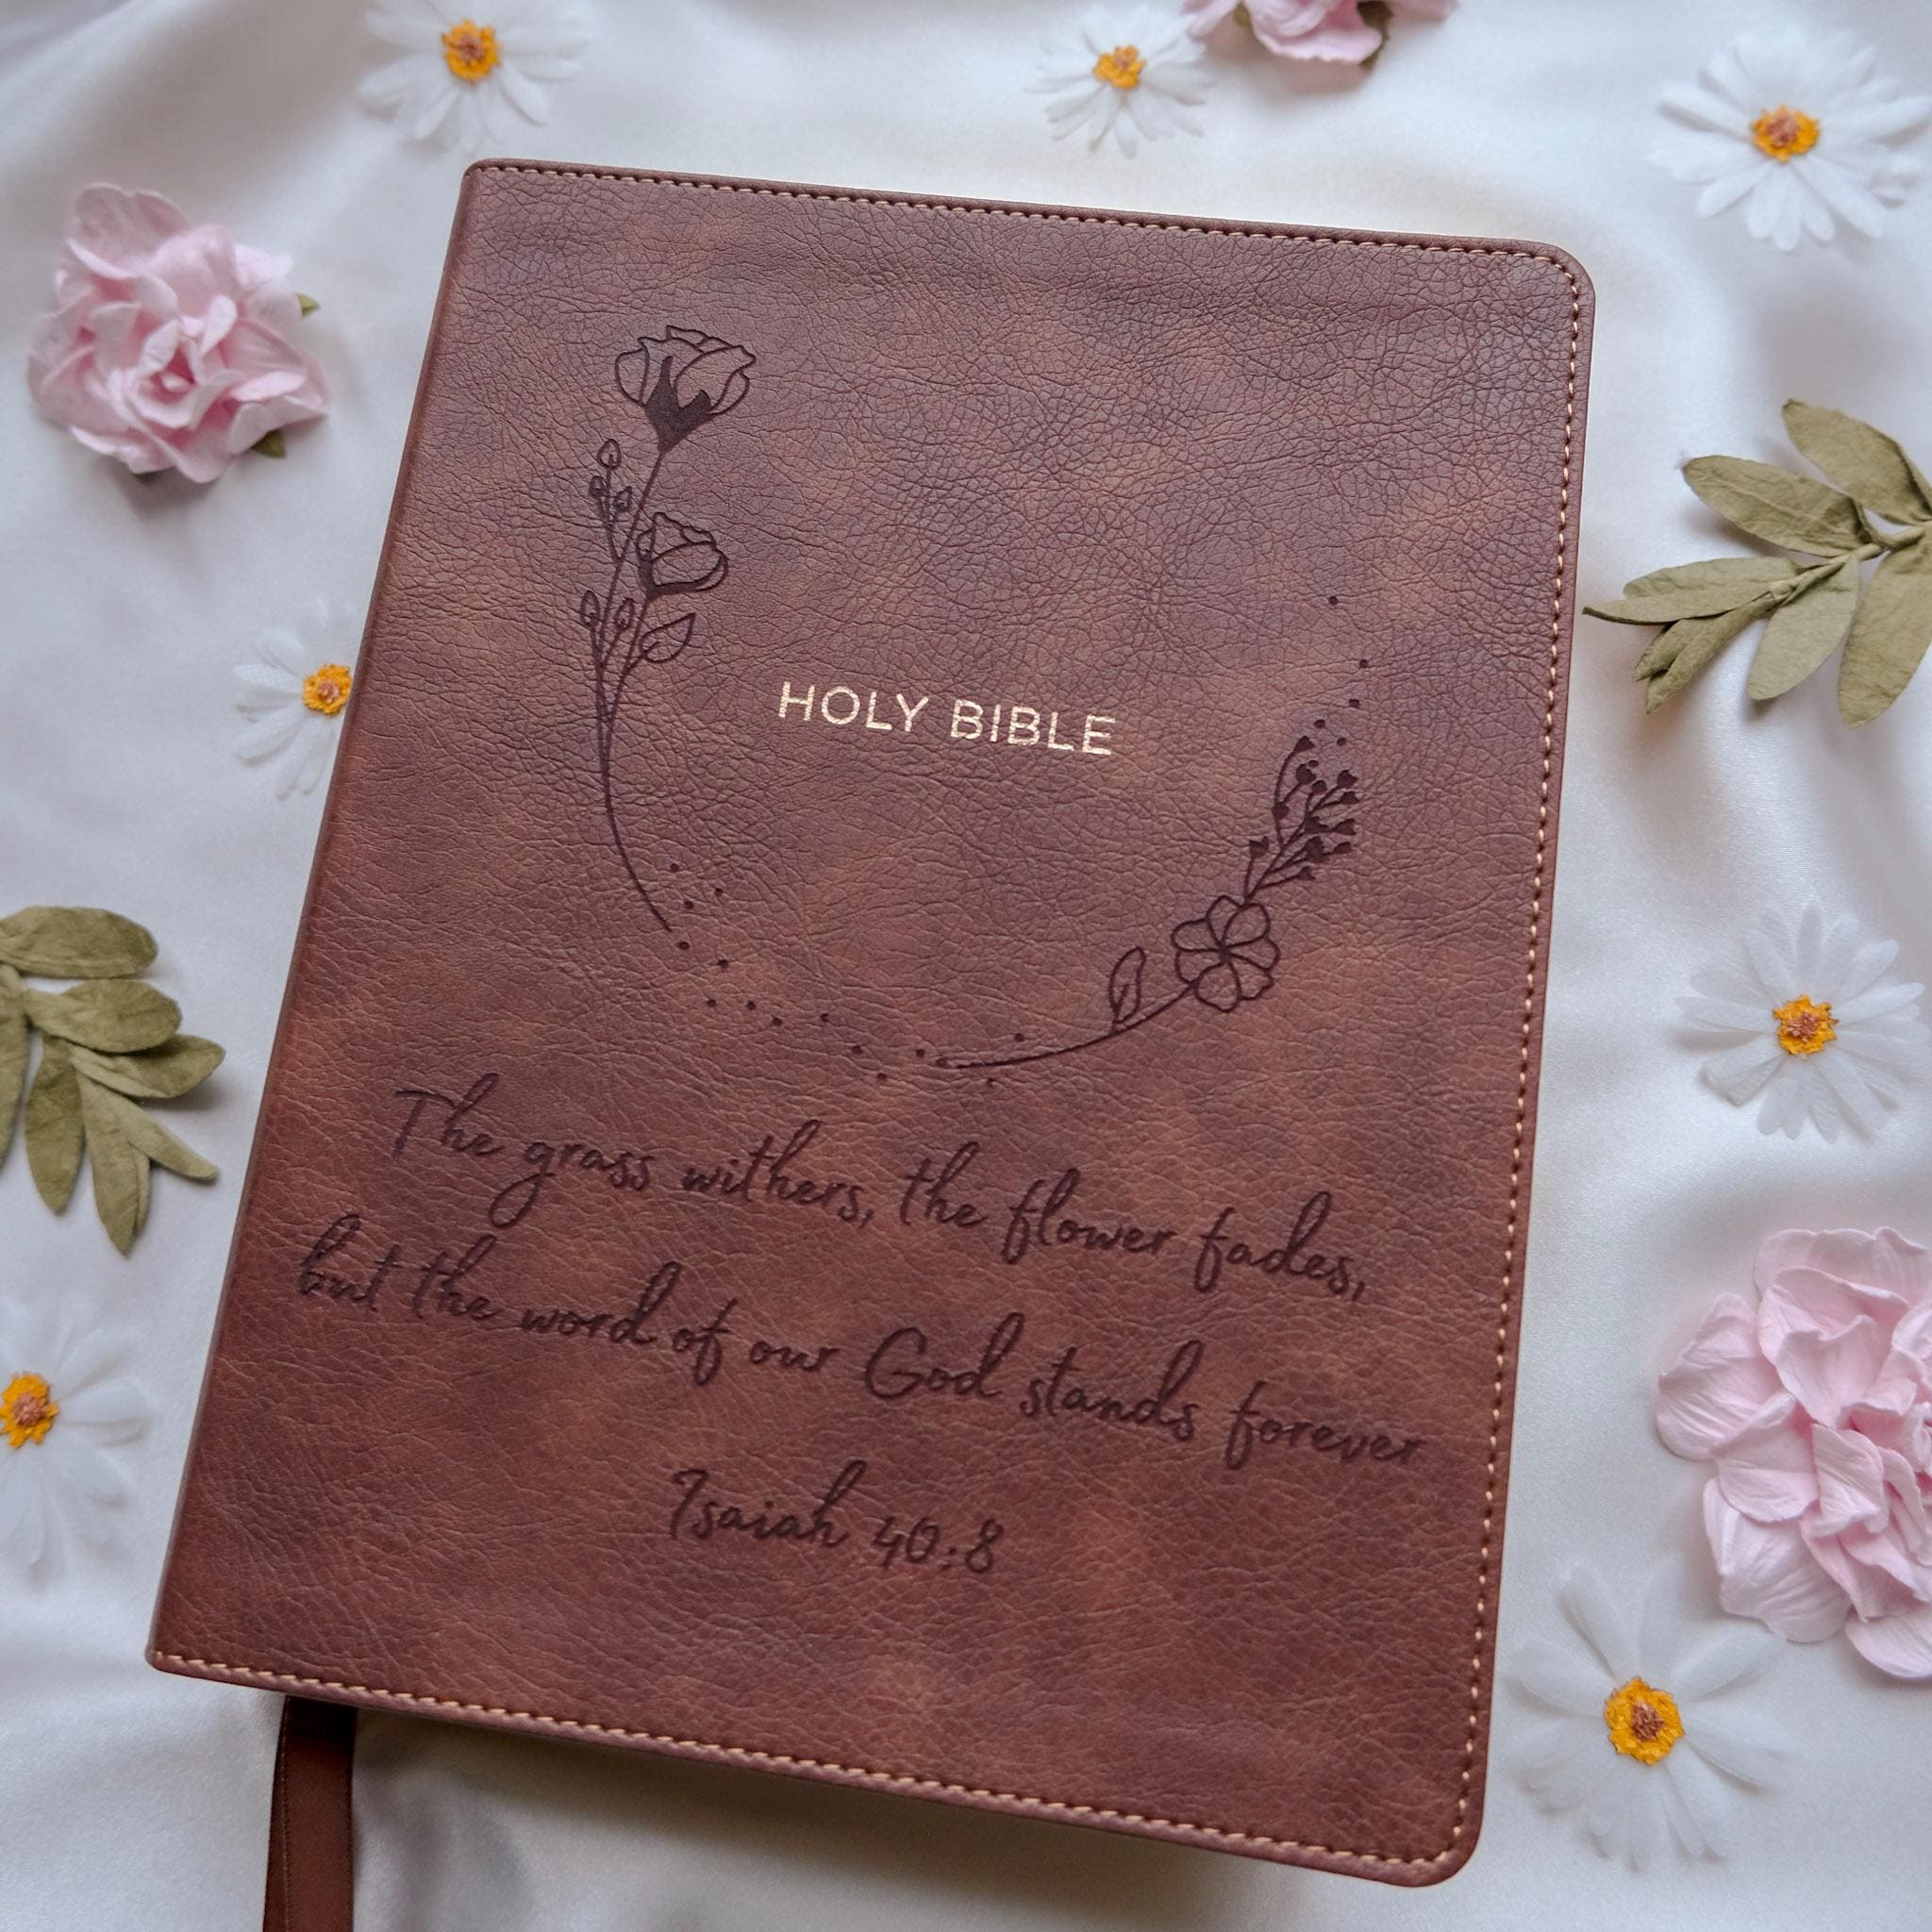 HOLY BIBLE
The grass withers, the flower fades,
but the word of our God stands forever
Isaiah 40:8